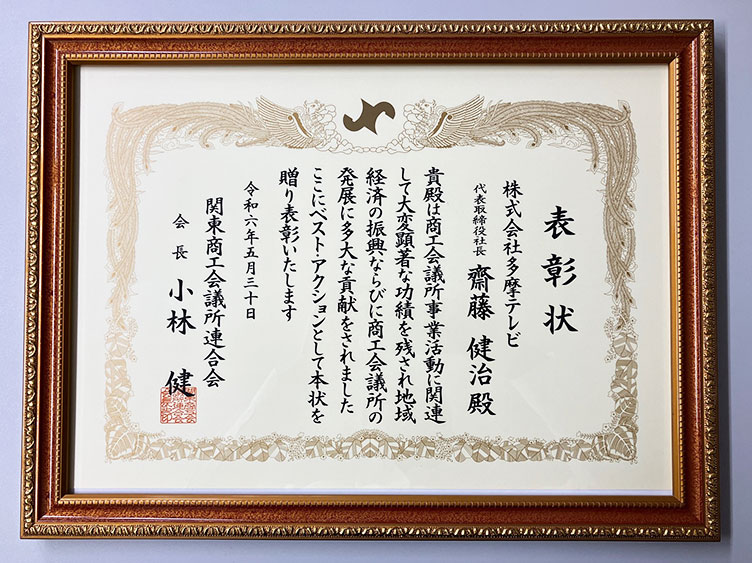 表彰状
株式会社多摩テレビ
代表取締役社長 齋藤 健治 殿
貴殿は商工会議所事業活動に関連
して大変顕著な功績を残され地域
経済の振興ならびに商工会議所の
発展に多大な貢献をされました
ここにベスト・アクションとして本状を
贈り表彰いたします
令和六年五月三十日
関東商工会議所連合会
会長 小林 健